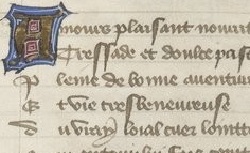 Amours plaisant nourri
Tressade et doulce pas
Pleine de bonne aventur
Et vie tresbeneureuse
Du vray loial cuer